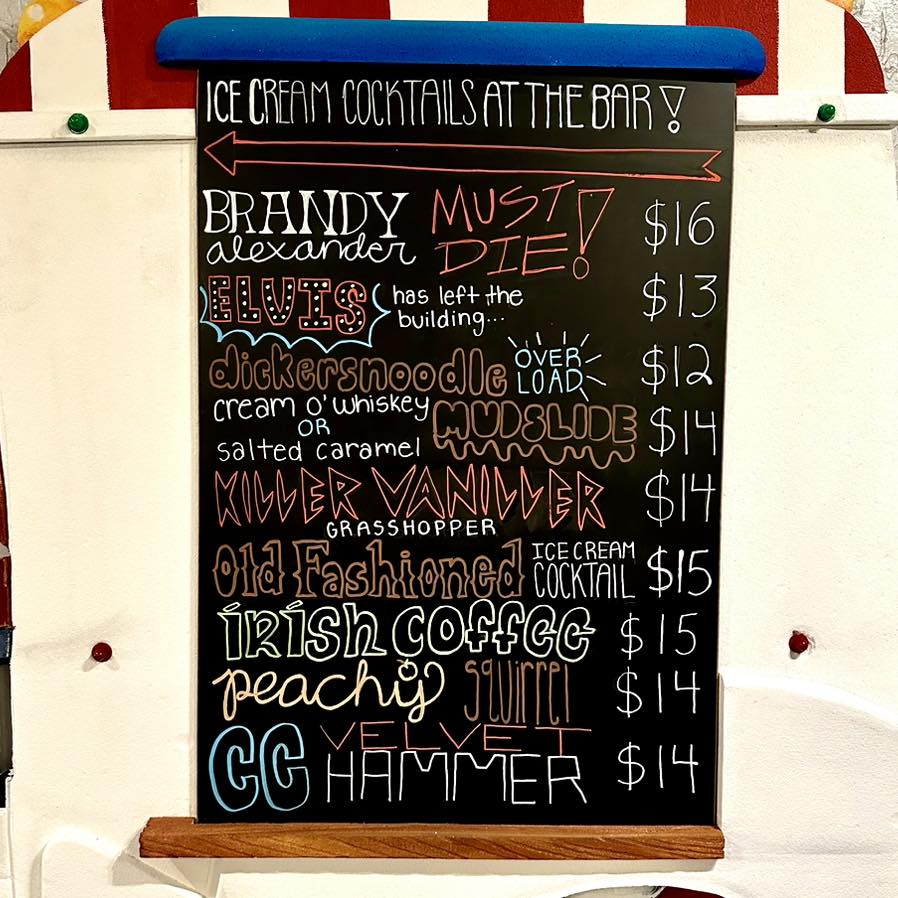 ICE CREAM COCKTAILS AT THE BAR!
BRANDY alexander MUST DIE! $16
ELVIS has left the building... $13
dickersnoodle OVER LOAD $12
cream o' whiskey OR salted caramel MUDSLIDE $14
KILLER VANILLER GRASSHOPPER $14
Old Fashioned ICE CREAM COCKTAIL $15
iRiSh COffEE $15
peachy squirrel $14
CC VELVET HAMMER $14